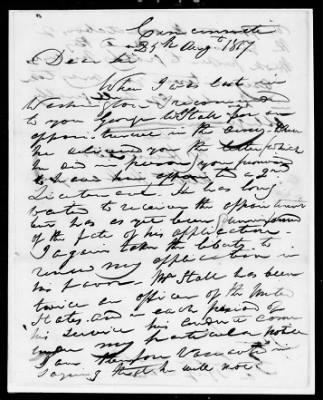 Cincinnati
25th Augt 1847
Dear Sir
When I was last in
Washington I recommended
to you George W Stall for an
appointment in the army. When
he delivered you the letter which
he in person you promised
to a 2nd
Lieutenant. He has long
waited to receive the appointment
but has as yet been uninformed
of the fate of his application.
I again take the liberty to
renew my application in
his favor. Mr Stall has been
twice an officer of the United
States and in each period of
his service his conduct came
under my particular notice
I am therefore
in again that he will not